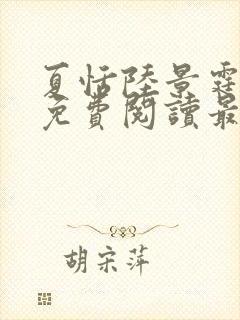 夏恬陸景霆
免費閱讀最
胡宗萍